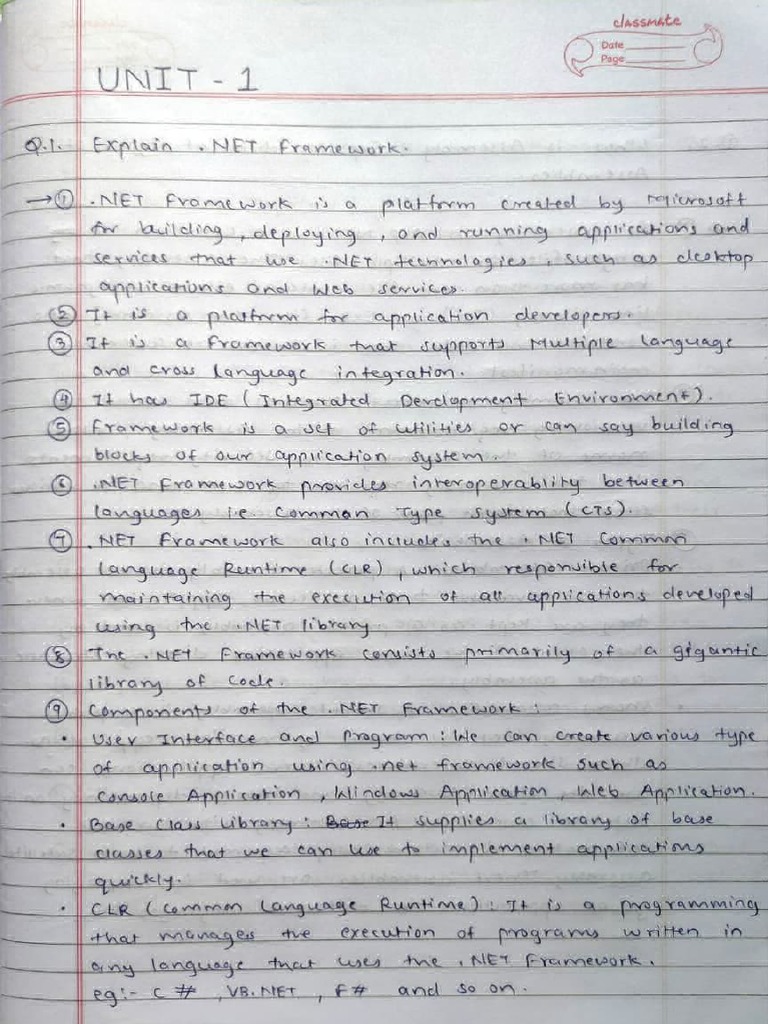 classmate
Date
Page
UNIT - 1
Q.1. Explain .NET Framework.
→ ① .NET Framework is a platform created by Microsoft
for building, deploying, and running applications and
services that use .NET technologies, such as desktop
applications and Web services.
② It is a platform for application developers.
③ It is a Framework that supports Multiple Language
and cross language integration.
④ It has IDE (Integrated Development Environment).
⑤ Framework is a set of utilities or can say building
blocks of our application system.
⑥ .NET Framework provides interoperablity between
languages i.e. Common Type System (CTS).
⑦ .NET Framework also includes the .NET Common
Language Runtime (CLR), which responsible for
maintaining the execution of all applications developed
using the .NET library.
⑧ The .NET Framework consists primarily of a gigantic
library of code.
⑨ Components of the .NET Framework :
• User Interface and Program : We can create various type
of application using .net framework such as
Console Application, Windows Application, Web Application.
• Base Class Library : Base It supplies a library of base
classes that we can use to implement applications
quickly.
• CLR (Common Language Runtime) : It is a programming
that manages the execution of programs written in
any language that uses the .NET Framework.
eg:- C #, VB.NET, F# and so on.